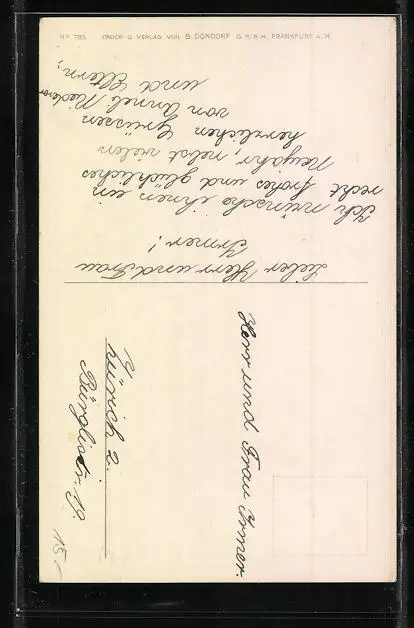 No 785 DRUCK U. VERLAG VON B. DONDORF G.M.B.H. FRANKFURT A.M.
Lieber Herr und Frau
Irmer!
Ich wünsche ihnen ein
recht frohes und glückliches
Neujahr, nebst vielen
herzlichen Grüssen
von Anneli
und Eltern;
Herr und Frau Irmer.
Zürich 2.
Bürglistr. 19
15.-